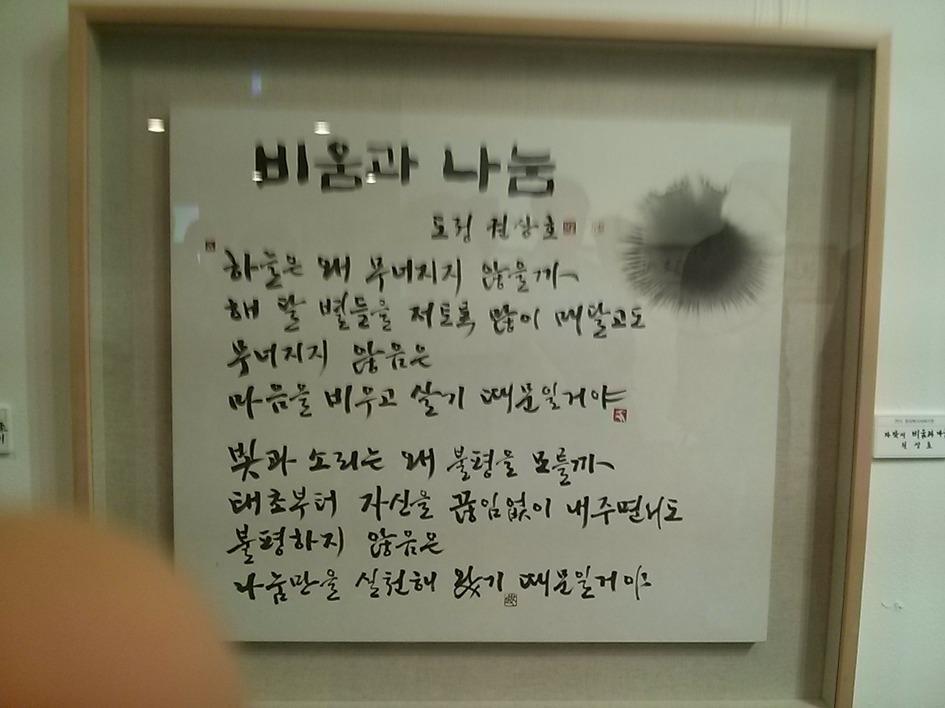 비움과 나눔
도정 권상호
하늘은 왜 무너지지 않을까
해 달 별들을 저토록 많이 매달고도
무너지지 않음은
마음을 비우고 살기 때문일거야
빛과 소리는 왜 불평을 모를까
태초부터 자신을 끊임없이 내주면서도
불평하지 않음은
나눔만을 실천해 왔기 때문일거야
자작시 비움과
권상호